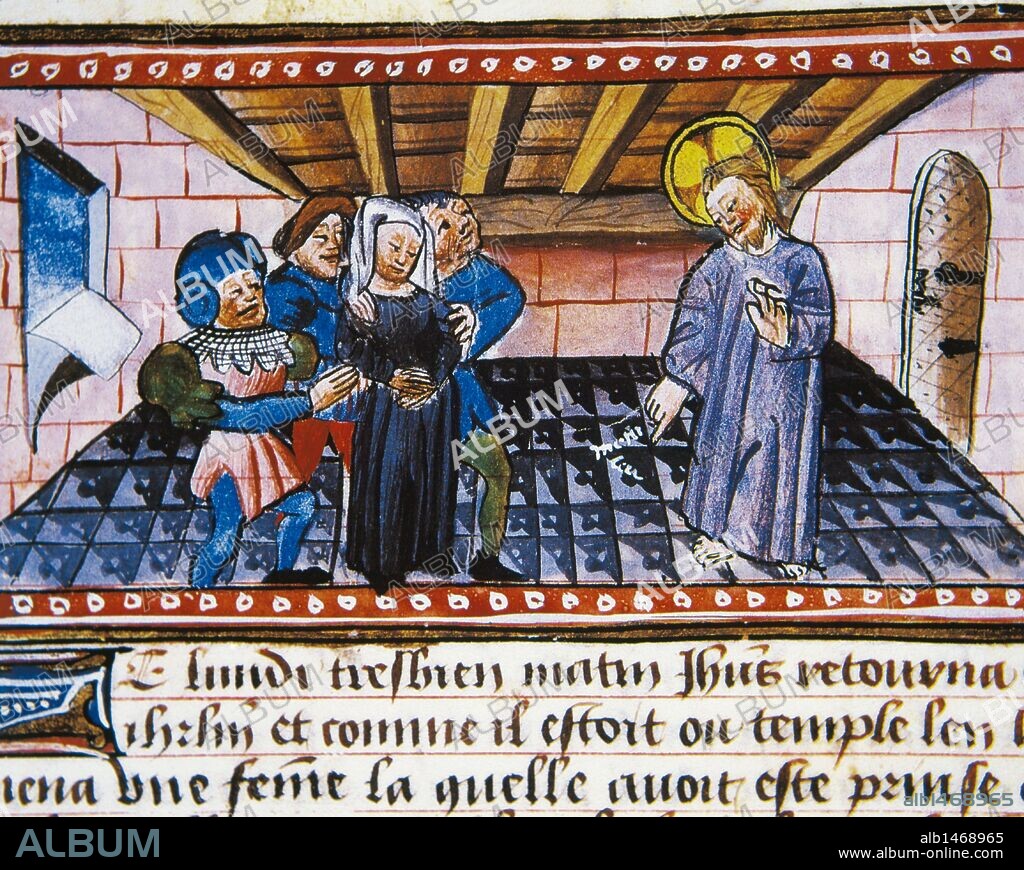 E lundi tresbien matin Jhūs retourna
ihrlm et comme il estoit ou temple len
mena vne fem̄e la quelle auoit este prinse
alb1468965
ALBUM
alb1468965
www.album-online.com